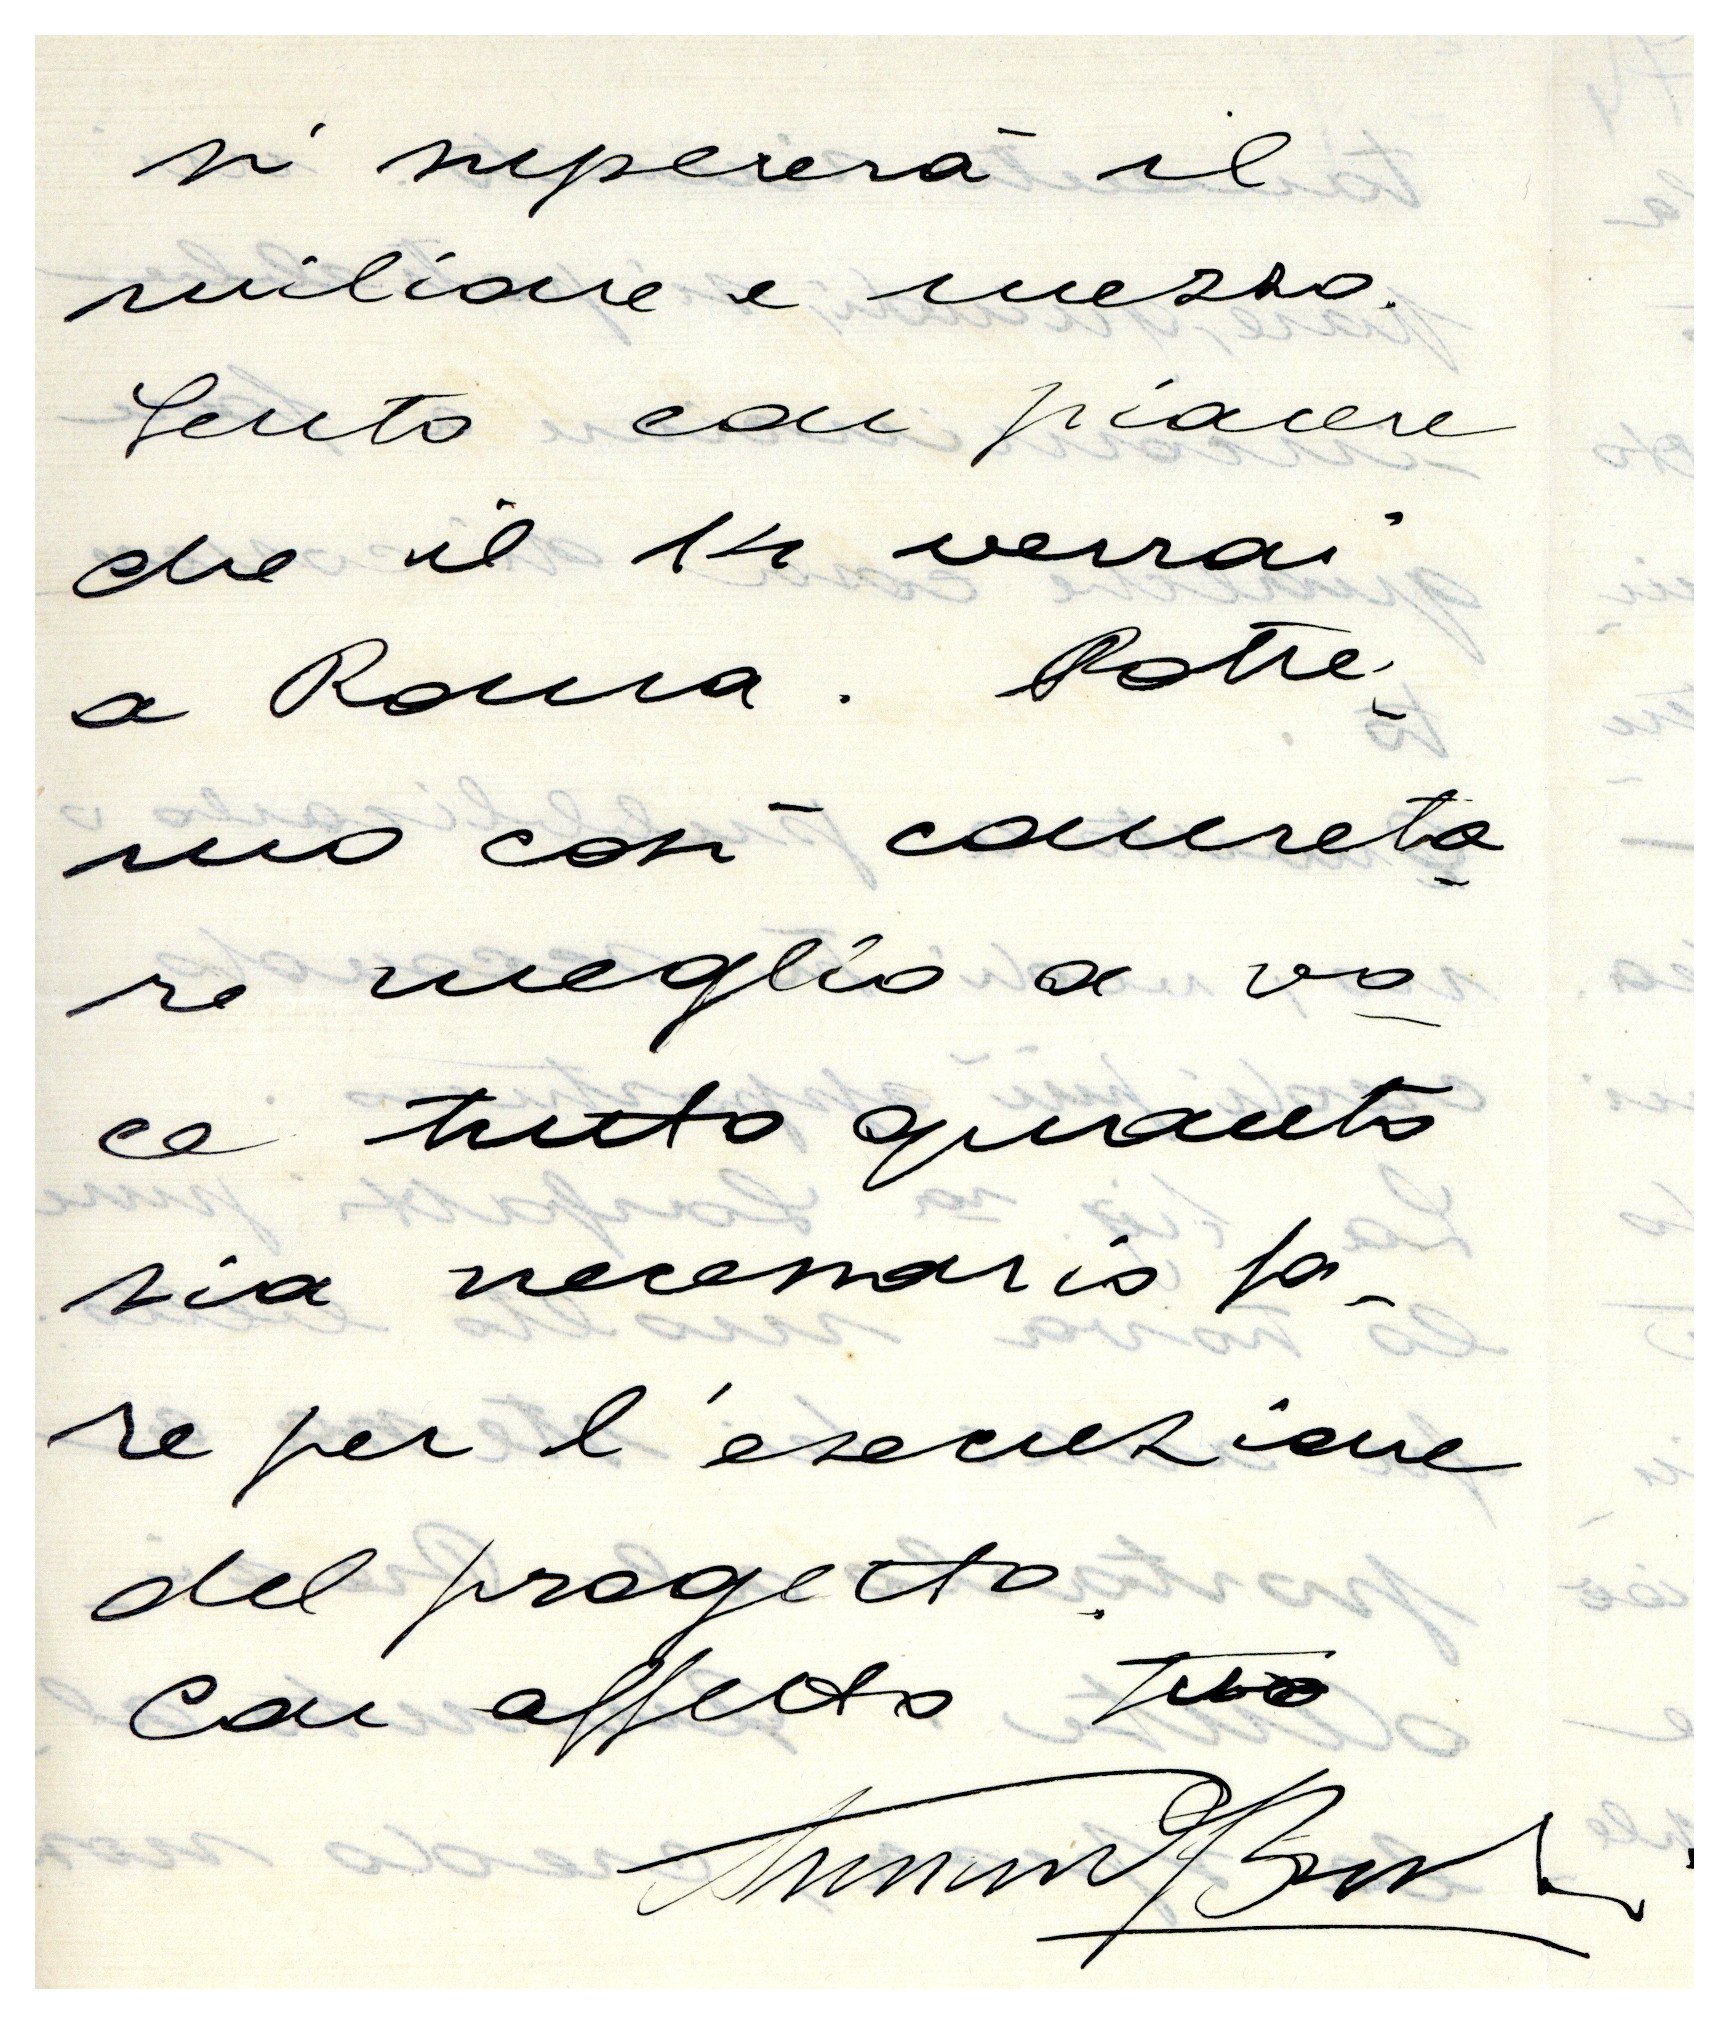 si supererà il
milione e mezzo.
Sento con piacere
che il 14 verrai
a Roma. Potre-
mo così concreta-
re meglio a vo-
ce tutto quanto
sia necessario fa-
re per l'esecuzione
del progetto.
Con affetto tuo